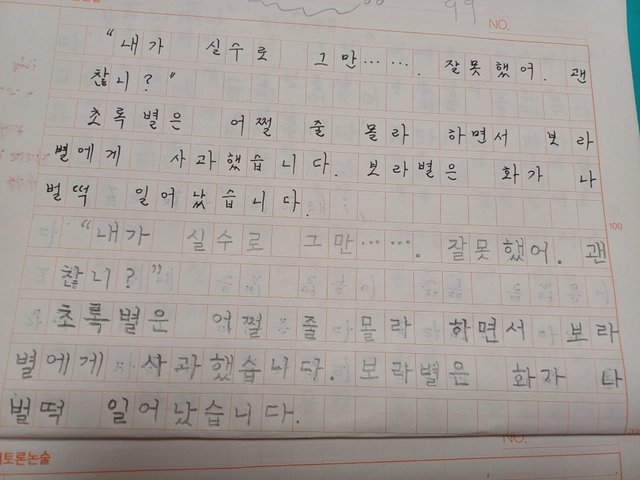 99
NO.
"내가 실수로 그만……. 잘못했어. 괜
찮니?"
초록별은 어쩔 줄 몰라 하면서 보라
별에게 사과했습니다. 보라별은 화가 나
벌떡 일어났습니다.
100
"내가 실수로 그만……. 잘못했어. 괜
찮니?"
초록별은 어쩔 줄 몰라 하면서 보라
별에게 사과했습니다. 보라별은 화자 나
벌떡 일어났습니다.
NO.
토론논술